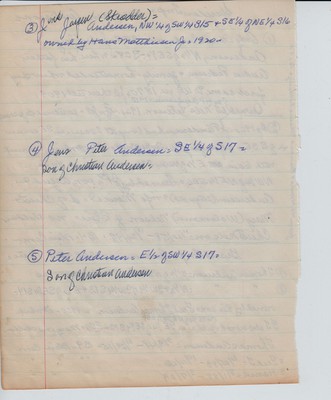 ③ Jens Jorgen (Skrædder) =
Andersen, NW 1/4 of SW 1/4 S15 & SE 1/4 of NE 1/4 S16
owned by Hans Matthiesen Jr. 1920.
④ Jens Peter Andersen = SE 1/4 of S17 =
Son of Christian Andersen.
⑤ Peter Andersen = E 1/2 of SW 1/4 S17.
Son of Christian Andersen